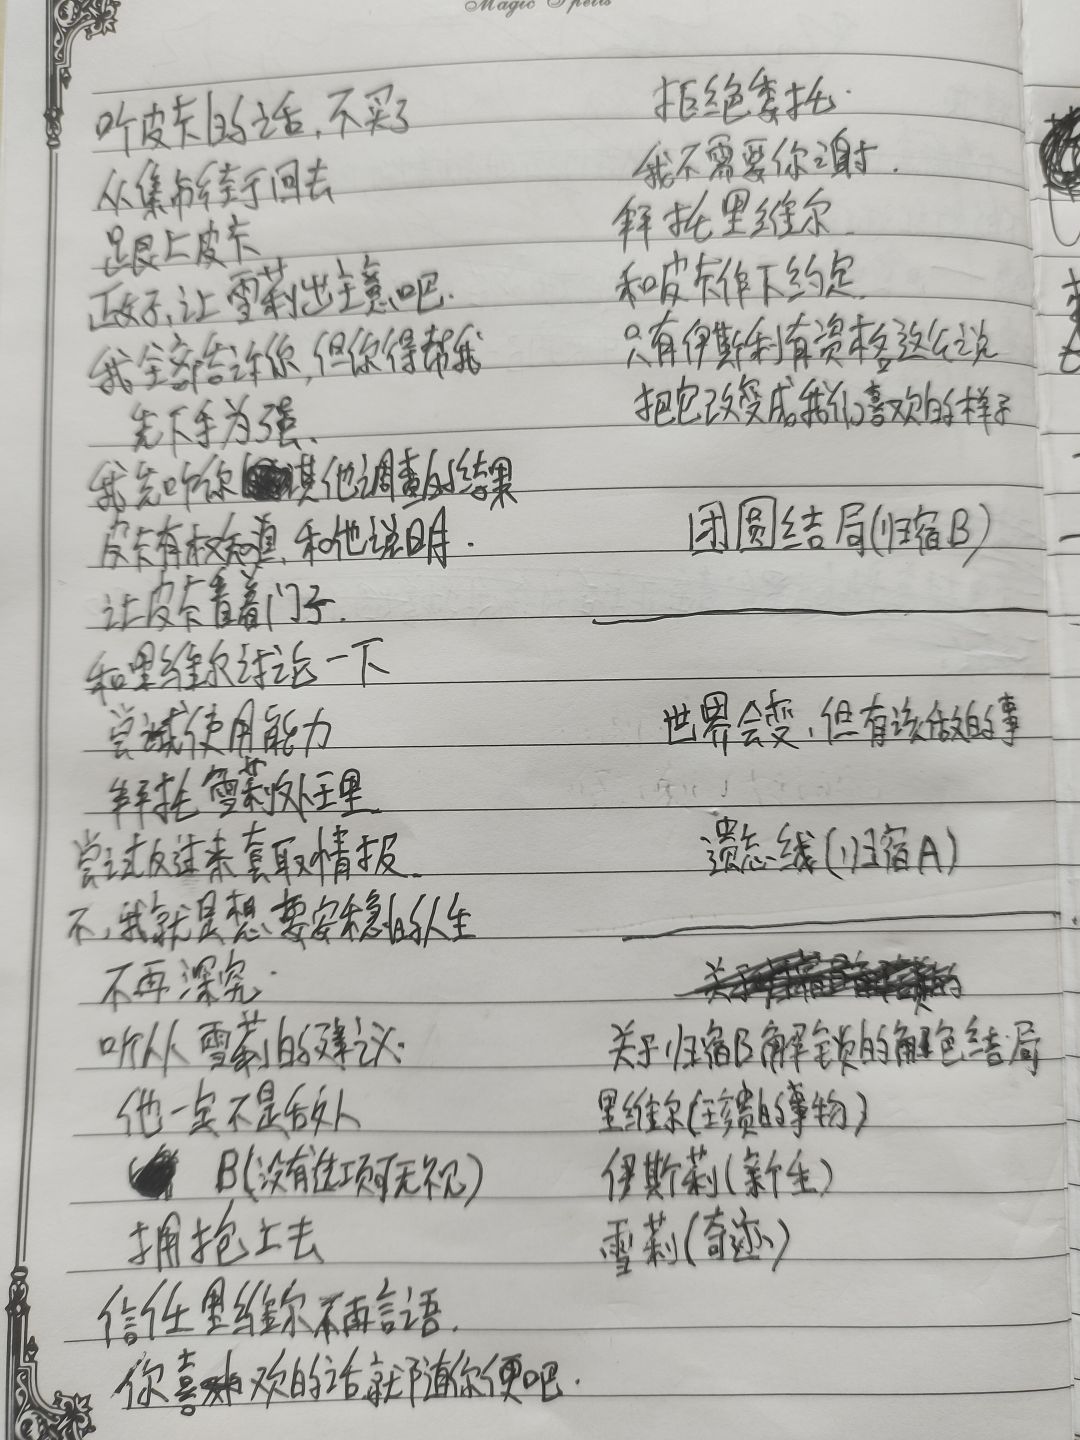 Magic Spells
听皮卡的话，不买了
从集市绕了回去
跟上皮卡
正好，让雪莉出主意吧.
我全部告诉你，但你得帮我
先下手为强.
我先听你其他调查的结果
皮卡有权知道，和他说明.
让皮卡看着门于.
和里维尔讨论一下
尝试使用能力
拜托雪莉处理
尝试反过来套取情报.
不，我就是想要安稳的人生
不再深究.
听从雪莉的建议.
他一定不是活人
B(没有选项可无视)
拥抱上去
信任里维尔不再言语.
你喜欢的话就随你便吧.
拒绝委托.
我不需要你谢.
拜托里维尔.
和皮卡作下约定.
只有伊斯利有资格这么说
把它改变成我们喜欢的样子
团圆结局(归宿B)
世界会变，但有该做的事
遗忘线(归宿A)
关于归宿B解锁的角色结局
里维尔(珍贵的事物)
伊斯莉(新生)
雪莉(奇迹)